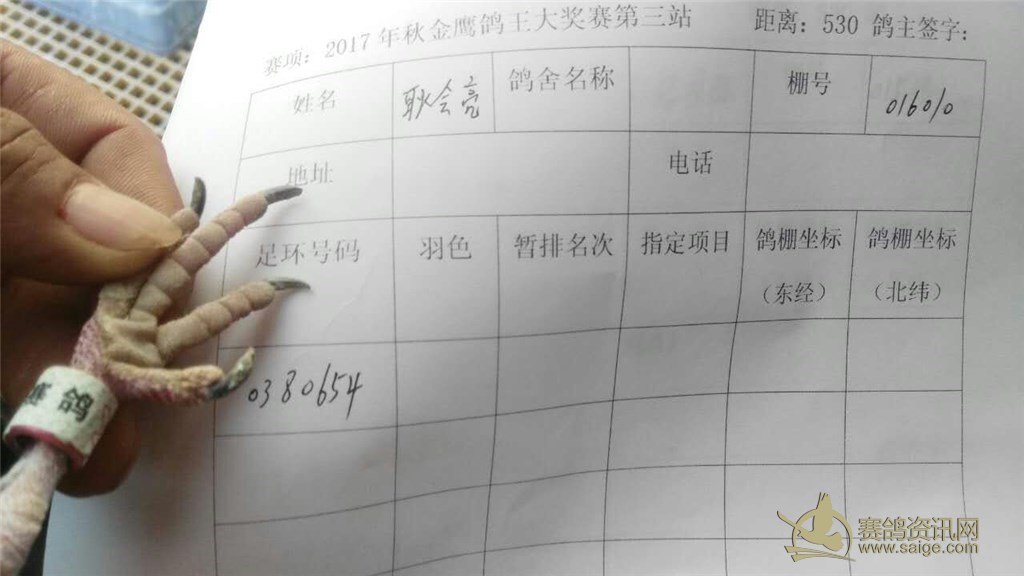 赛项：2017年秋金鹰鸽王大奖赛第三站 距离：530 鸽主签字：
姓名 耿会亮 鸽舍名称 棚号 016010
地址 电话
足环号码 羽色 暂排名次 指定项目 鸽棚坐标 鸽棚坐标
（东经） （北纬）
0380654
赛鸽
赛鸽资讯网
www.saige.com